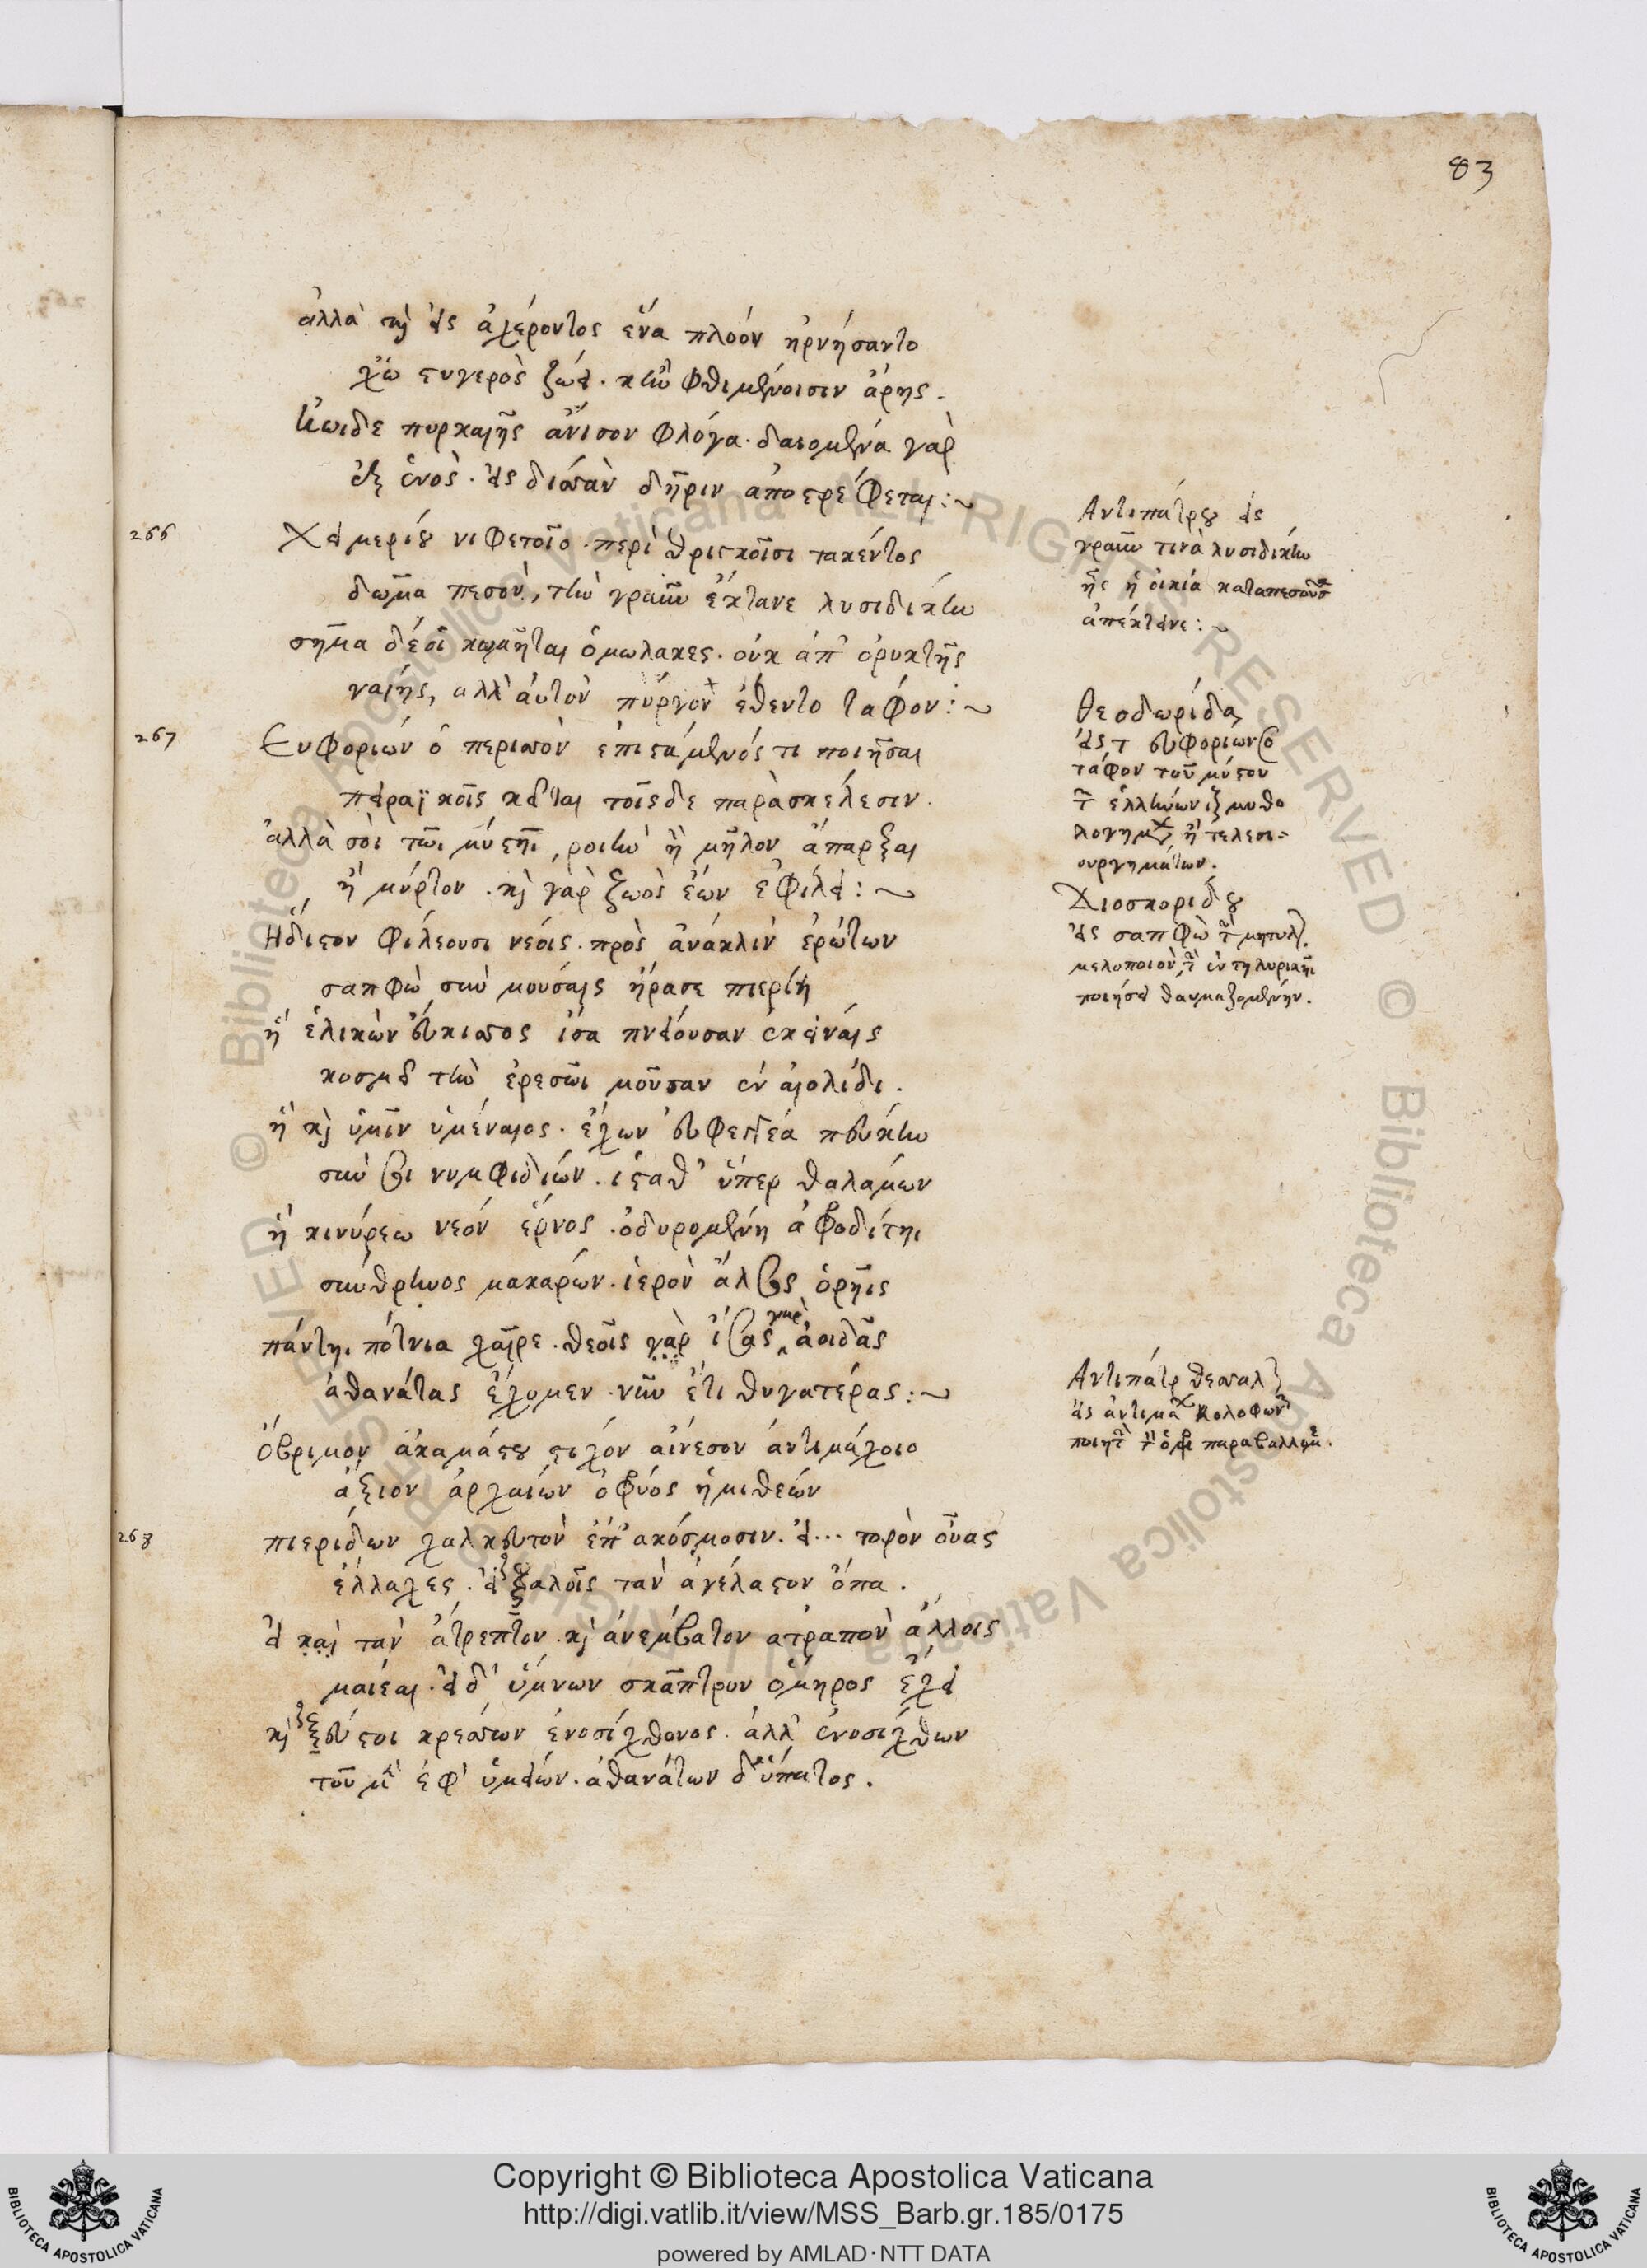 83
ἀλλὰ καὶ εἰς ἀχέροντος ἕνα πλοόν ἠρνήσαντο
χὠ στυγερὸς ζώει. κὴν φθιμένοισιν ἄρης.
πυρκαιῆς ἄνισον φλόγα. δαιομένα γὰρ
ἐξ ἑνὸς. εἰς δισσὰν δῆριν ἀποστρέφεται:~
266
Χειμερίου νιφετοῖο. περὶ θριγκοῖσι τακέντος
δῶμα πεσὸν, τὴν γραῦν ἔκτανε λυσιδίκην
σῆμα δέ οἱ κωμῆται ὁμώλακες. οὐκ ἀπ' ὀρυκτῆς
γαίης, ἀλλ' αὐτὸν πύργον ἔθεντο τάφον:~
267
Ευφορίων ὁ περισσὸν ἐπιστάμενός τι ποιῆσαι
πειραϊκοῖς κεῖται τοῖσδε παρὰ σκέλεσιν.
ἀλλὰ σὸι τῶι μύστηι, ροιὴν ἢ μῆλον ἄπαρξαι
ἢ μύρτον. καὶ γὰρ ζωὸς ἐὼν ἐφίλει:~
Ηδιστον φιλέουσι νέοις. πρὸς ἀνάκλιν' ἐρώτων
σαπφὼ σὺν μούσαις ἦρασε πιερίη
ἢ ἑλικὼν εὔκισσος ἴσα πνείουσαν ἐκείναις
κοσμεῖ τὴν ἐρεσῶι μοῦσαν ἐν αἰολίδι.
ἢ καὶ ὑμὶν ὑμέναιος. ἔχων εὐφεγγέα πεύκην
σὺν σοι νυμφιδίων. ἵσταθ' ὕπερ θαλάμων
ἢ κινύρεω νεόν ἔρνος. ὀδυρομένη ἀφροδίτηι
σύνθρηνος μακάρων. ἱερὸν ἄλσος ὁρῆις
πάντηι πότνια χαῖρε. θεοῖς γὰρ ἴσας γὰρ ἀοιδᾶς
ἀθανάτας ἔχομεν. νῦν ἔτι θυγατέρας:~
Ὄβριμον ἀκαμάτου στίχον αἴνεσον ἀντιμάχοιο
ἄξιον ἀρχαίων ὀφρύος ἡμιθέων
268
πιερίδων χαλκευτὸν ἐπ' ἄκόσμοσιν. εἰ... τορὸν οὖας
ἔλλαχες. εἰ ζαλοῖς τὰν ἀγέλαστον ὄπα.
εἰ καὶ τὰν ἄτρεπτον. καὶ ἀνέμβατον ἀτραπὸν ἄλλοις
μαίεαι. εἰ δ' ὕμνων σκᾶπτρον ὅμηρος ἔχει
καὶ ζεύς τοι κρέσσων ἐνοσίχθονος. ἀλλ' ἐνοσίχθων
τοῦ μὲν ἔφ' ὑμείων. ἀθανάτων δ' ὕπατος.
Αντιπάτρου εἰς
γραῦν τινὰ λυσιδίκην
ἧς ἡ οἰκία καταπεσοῦσα
ἀπέκτεινε:~
Θεοδωρίδα
εἰς τ εὐφορίωνος
τάφον τοῦ μύστου
τῶν ἑλλήνων μυθο
λογημάτων ἢ τελεσι-
ουργημάτων.
Διοσκορίδου
εἰς σαπφὼ τὴν μητυλ.
μελοποιὸν, τὴν ἐν τῆ λυρικῆι
ποιήσει θαυμαζομένην.
Αντιπάτρ θεσσαλ
εἰς ἀντίμαχ κολοφων
ποιητ παραβαλλομ.
Copyright © Biblioteca Apostolica Vaticana
http://digi.vatlib.it/view/MSS_Barb.gr.185/0175
powered by AMLAD·NTT DATA
BIBLIOTECA APOSTOLICA VATICANA
BIBLIOTECA APOSTOLICA VATICANA
© Biblioteca Apostolica Vaticana ALL RIGHTS RESERVED © Biblioteca Apostolica Vaticana ALL RIGHTS RESERVED